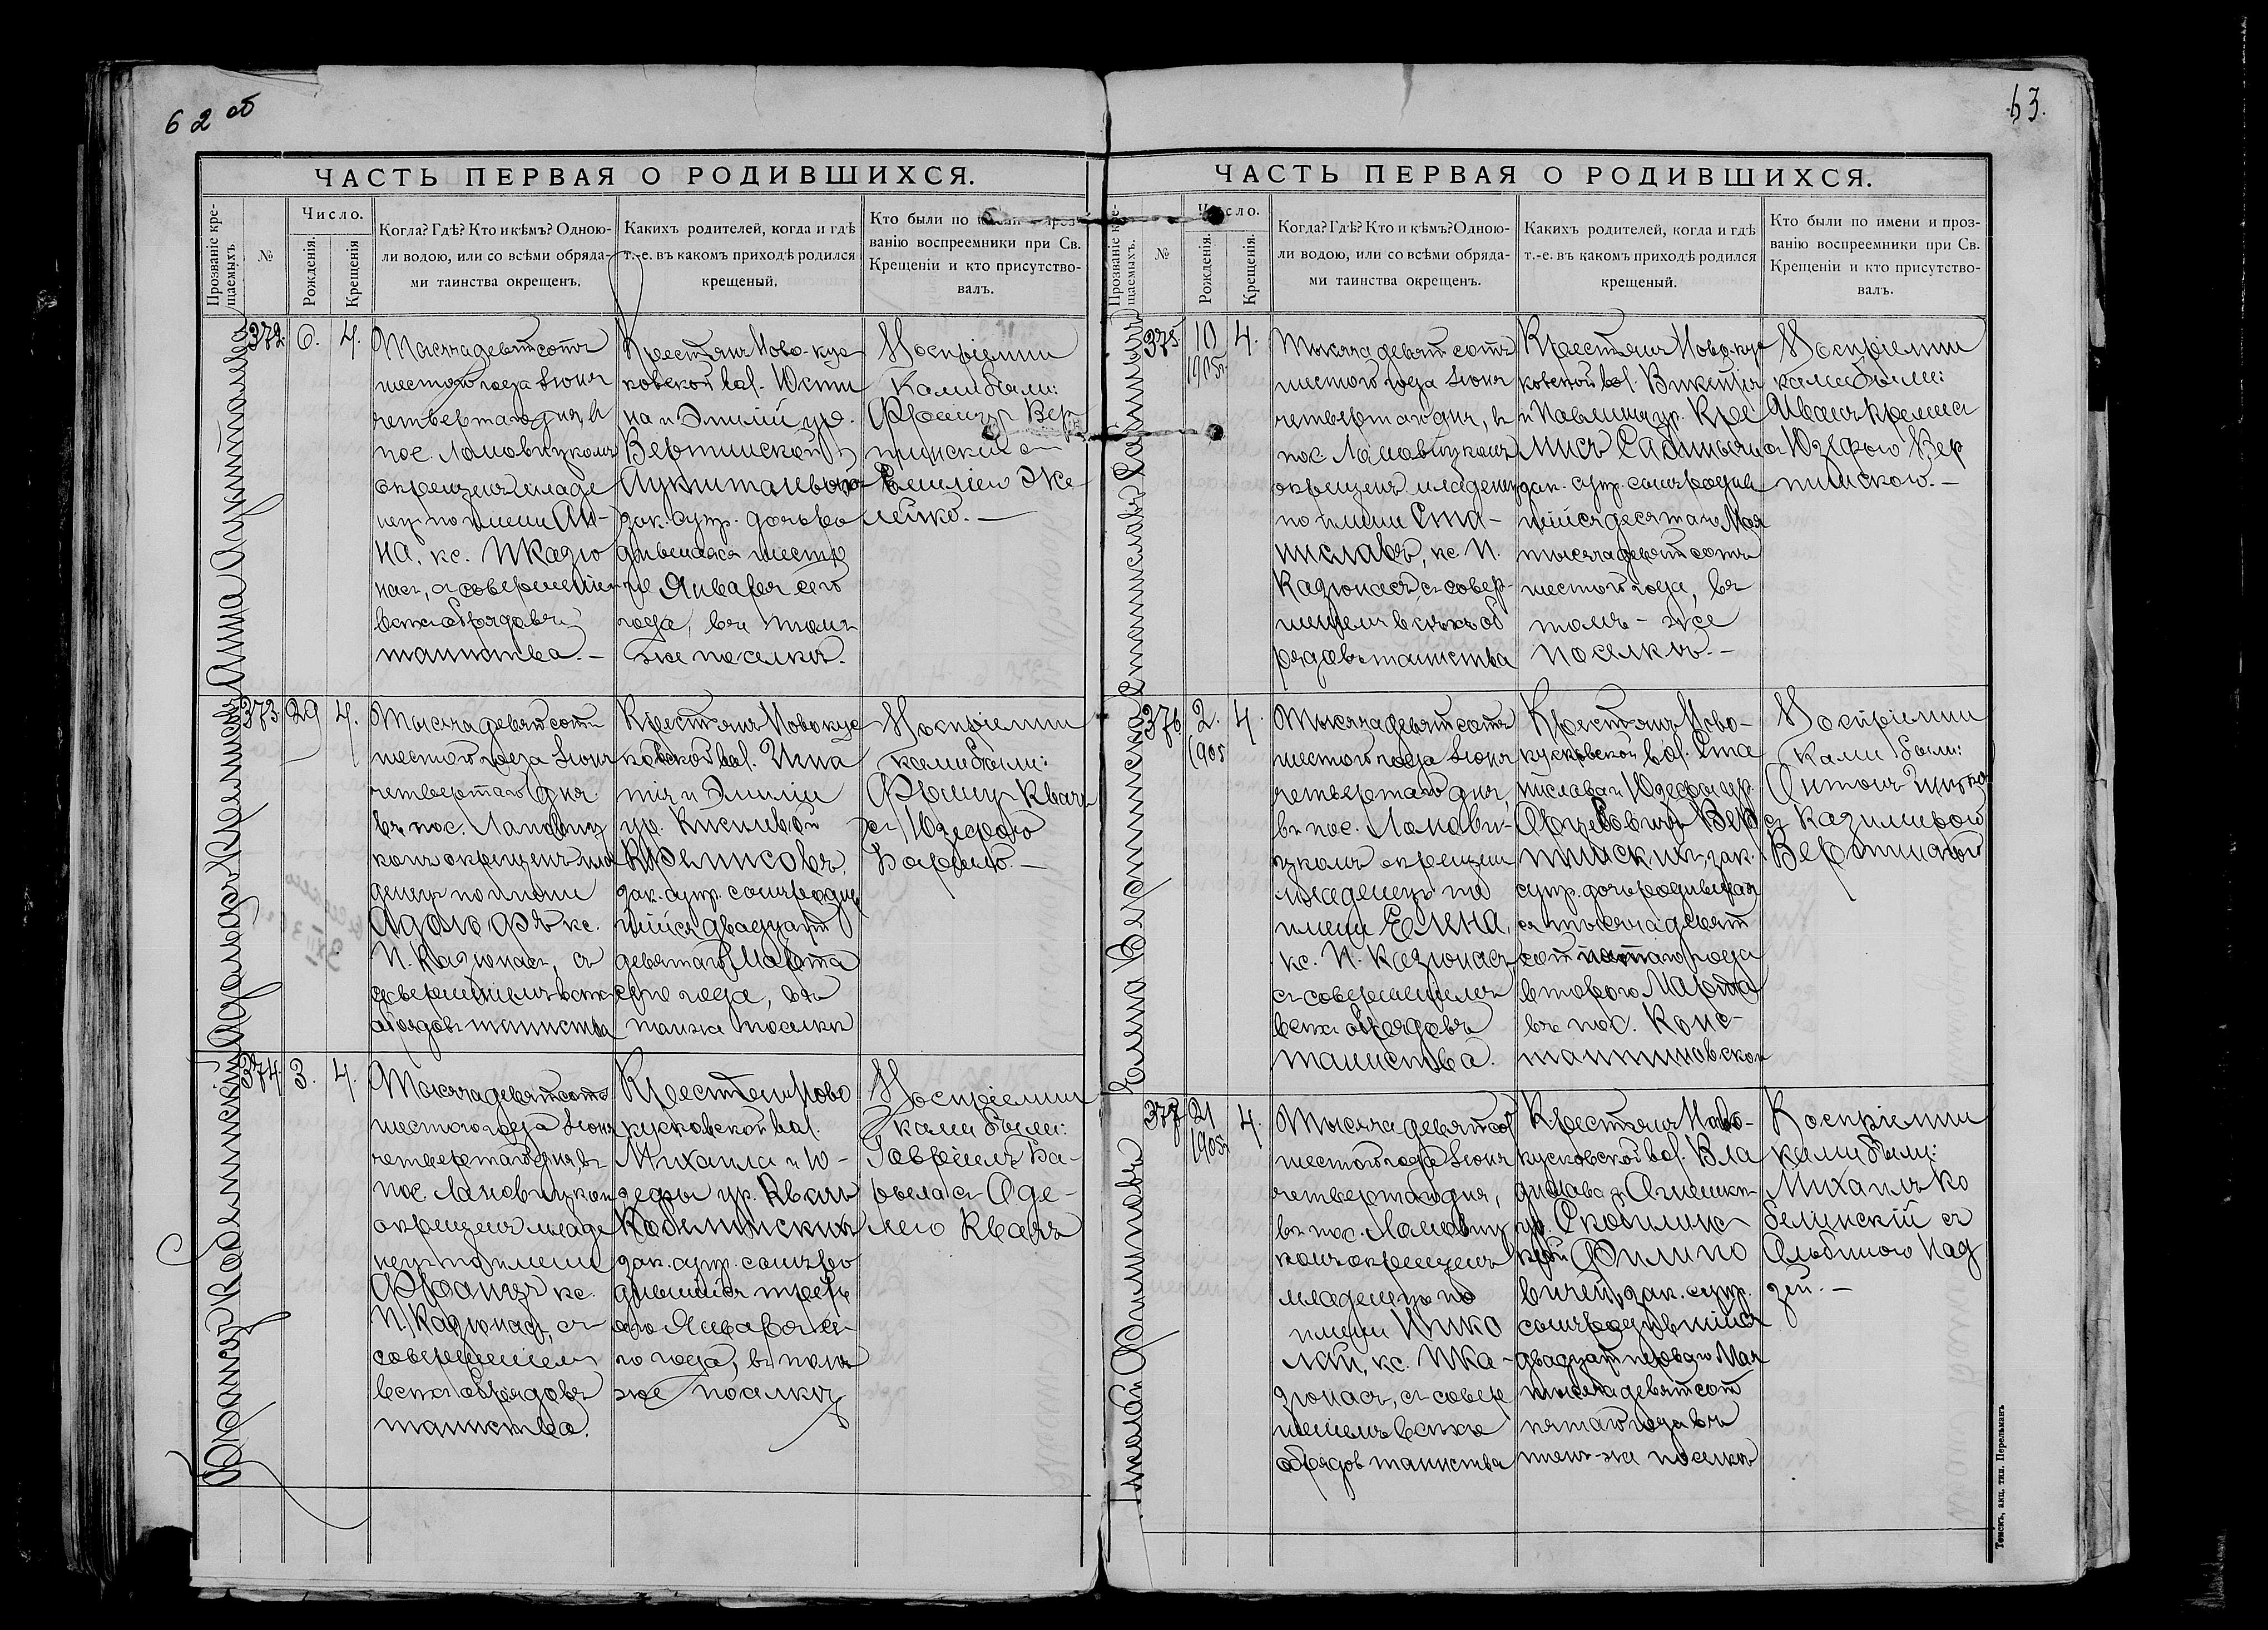 62 об
ЧАСТЬ ПЕРВАЯ О РОДИВШИХСЯ.
Прозваніе кре-
щаемыхъ.
№
Число.
Рожденія.
Крещенія
Когда? Гдѣ? Кто и кѣмъ? Одною-
ли водою, или со всѣми обряда-
ми таинства окрещенъ.
Какихъ родителей, когда и гдѣ
т.-е. въ какомъ приходѣ родился
крещеный.
Кто были по имени и проз-
ванію воспреемники при Св.
Крещеніи и кто присутство-
валъ.
Анна
372
6.
4.
Тысяча девятсотъ
шестого года Іюня
четвертаго дня, в
пос. Лановицкомъ
окрещенъ младе
нец по имени Ан-
на, кс. П Казю
насъ, с совершеніем
всѣхъ обрядовъ
таинства.-
Крестьянъ Ново-кус
ковской вол. Юсти
на и Эмиліи ур.
Вертинской
зак. супр. дочь ро
дившаяся шесто
го Января сего
года, въ томъ
же поселкѣ.
Воспріемни
ками были:
Францъ Вер
тинскій съ
Емиліею Же
лейко.-
Адольфъ
373
29
4.
Тысяча девятсотъ
шестого года Іюня
четвертаго дня
въ пос. Лановиц
комъ окрещенъ мла
денецъ по имени
Адольфъ кс.
П. Казюнасъ, съ
совершеніемъ всѣхъ
обрядовъ таинства
Крестьянъ Новокус
ковской вол. Игна
тія и Эмиліи
ур.
зак. супр. сынъ родив
шійся двадцать
девятаго Марта
сего года, въ
томже поселкѣ
Воспріемни
ками были:
Францъ Квач
съ Юзефою
Францъ Кобелинскій
374
3.
4.
Тысяча девятсотъ
шестого года Іюня
четвертаго дня, въ
пос. Лановицком
окрещенъ младе
нецъ по имени
Францъ кс.
П. Казюнасъ, съ
совершеніемъ
всѣхъ обрядовъ
таинства.
Крестьянъ Ново
кусковской вол.
Михаила и Ю-
зефы ур. Квачъ
Кобелинскихъ
зак. супр. сынъ ро
дившійся треть
яго Января се-
го года, въ томъ
же поселкѣ
Воспріемни
ками были:
Гавріилъ
63.
ЧАСТЬ ПЕРВАЯ О РОДИВШИХСЯ.
Прозваніе кре-
щаемыхъ.
№
Число.
Рожденія.
Крещенія.
Когда? Гдѣ? Кто и кѣмъ? Одною-
ли водою, или со всѣми обряда-
ми таинства окрещенъ.
Какихъ родителей, когда и гдѣ
т.-е. въ какомъ приходѣ родился
крещеный.
Кто были по имени и проз-
ванію воспреемники при Св.
Крещеніи и кто присутство-
валъ.
Станиславъ
375.
10
1905
4.
Тысяча девятсотъ
шестого года Іюня
четвертаго дня, въ
пос. Лановицкомъ
окрещенъ младенец
по имени Ста-
ниславъ, кс. П.
Казюнасъ съ совер-
шеніемъ всѣхъ об
рядовъ таинства
Крестьянъ Новокус
ковской вол. Викентія
и Павлины ур.
зак. супр. сынъ родив
шійся десятаго Мая
тысяча девятсотъ
шестого года, въ
томъ-же
поселкѣ.-
Воспріемни
ками были:
съ Юзефою Вер
тинскою.-
Елина Вертинска
376
2.
1905
4.
Тысяча девятсотъ
шестого года Іюня
четвертаго дня,
въ пос. Ланови-
цкомъ окрещенъ
младенецъ по
имени Елина,
кс. П. Казюнасъ
съ совершеніемъ
всѣхъ обрядовъ
таинства.
Крестьянъ Ново-
кусковской вол. Ста
нислава и Юзефы ур.
тинскихъ, зак.
супр. дочь родившая
ся тысяча девят
сотъ пятаго года
второго Марта
въ пос. Конс-
тантиновском
Воспріемни
ками были:
Антонъ
съ Казимирою
Вертинской
Николай Филиповъ
377
21
1905
4.
Тысяча девятсот
шестого года Іюня
четвертаго дня,
въ пос. Лановиц
комъ окрещенъ
младенецъ по
имени Нико
лай, кс. П Ка-
зюнасъ, съ совер
шеніемъ всѣхъ
обрядов таинства
Крестьянъ Ново-
кусковской вол. Вла
дислава и Агнешки
ур.
зак. супр.
сынъ родившійся
двадцать перваго Мая
тысяча девятсот
пятаго года въ
томъ-же поселкѣ
Воспріемни
ками были:
Михаилъ Ко
белинскій съ
Альбиною Над
зей.-
Томскъ, акц. тип. Перельманъ